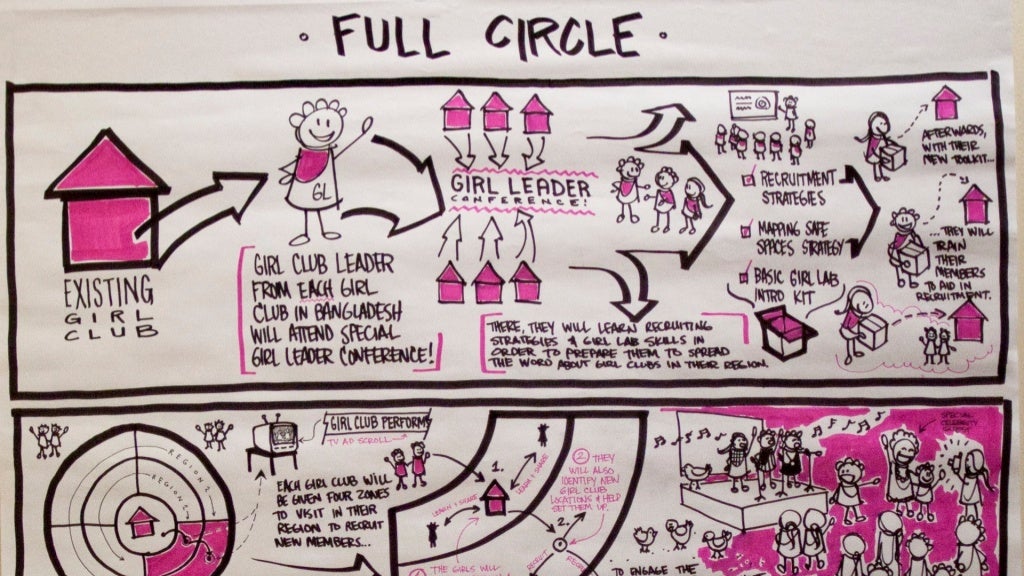 · FULL CIRCLE ·
EXISTING
GIRL
CLUB
GL
GIRL CLUB LEADER
FROM EACH GIRL
CLUB IN BANGLADESH
WILL ATTEND SPECIAL
GIRL LEADER CONFERENCE!
GIRL LEADER
CONFERENCE!
THERE, THEY WILL LEARN RECRUITING
STRATEGIES & GIRL LAB SKILLS IN
ORDER TO PREPARE THEM TO SPREAD
THE WORD ABOUT GIRL CLUBS IN THEIR REGION.
RECRUITMENT
STRATEGIES
MAPPING SAFE
SPACES STRATEGY
BASIC GIRL LAB
INTRO KIT
AFTERWARDS,
WITH THEIR
NEW TOOLKIT...
...THEY WILL
TRAIN
THEIR
MEMBERS
TO AID IN
RECRUITMENT.
REGION 2
REGION 1
GIRL CLUB PERFORMS
TV AD SCROLL
EACH GIRL CLUB WILL
BE GIVEN FOUR ZONES
TO VISIT IN THEIR
REGION TO RECRUIT
NEW MEMBERS...
1.
LEARN & SHARE
LEARN & SHARE
1
THE GIRLS WILL
2
THEY
WILL ALSO
IDENTIFY NEW
GIRL CLUB
LOCATIONS & HELP
SET THEM UP.
2.
RECRUIT
SPECIAL
CELEBRITY
GUEST
TO ENGAGE THE